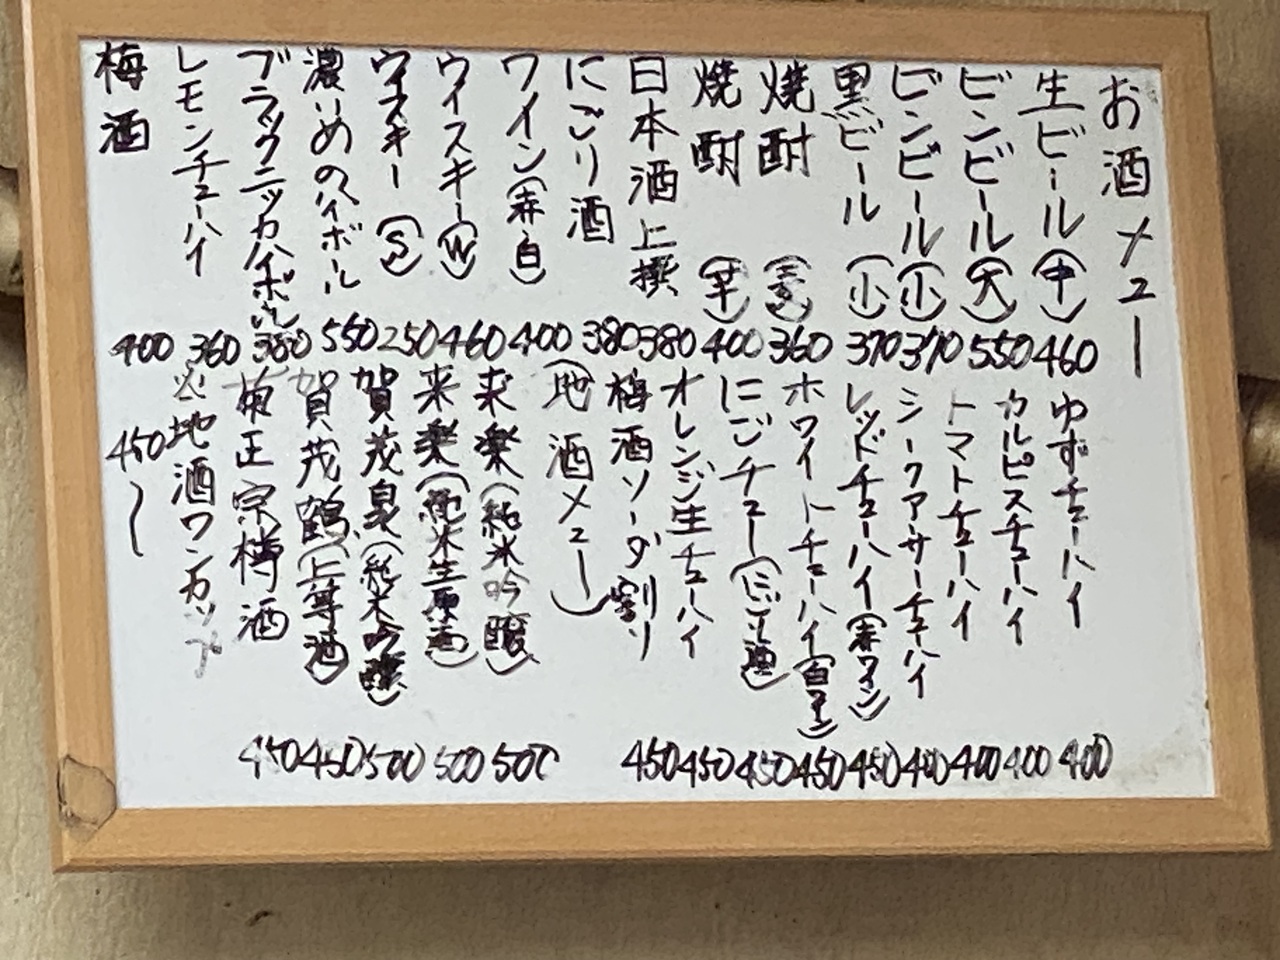 お酒メュー
生ビール(中) 460
ビンビール(大) 550
ビンビール(小) 370
黒ビール(小) 370
焼酎(麦) 360
焼酎(芋) 400
日本酒上撰 380
にごり酒 380
ワイン(赤・白) 400
ウイスキー(W) 460
ウイスキー(S) 250
濃いめのハイボール 550
ブラックニッカハイボール 380
レモンチューハイ 360
梅酒 400
ゆずチューハイ 400
カルピスチューハイ 400
トマトチューハイ 400
シークアーサーチューハイ 400
レッドチューハイ(赤ワイン) 450
ホワイトチューハイ(白ワイン) 450
にごチュー(にごり酒) 450
オレンジ生チューハイ 450
梅酒ソーダ割り 450
(地酒メュー)
来楽(純米吟醸) 500
来楽(純米生原酒) 500
賀茂泉(純米吟醸) 500
賀茂鶴(上等酒) 450
菊正宗樽酒 450
※地酒ワンカップ
450〜